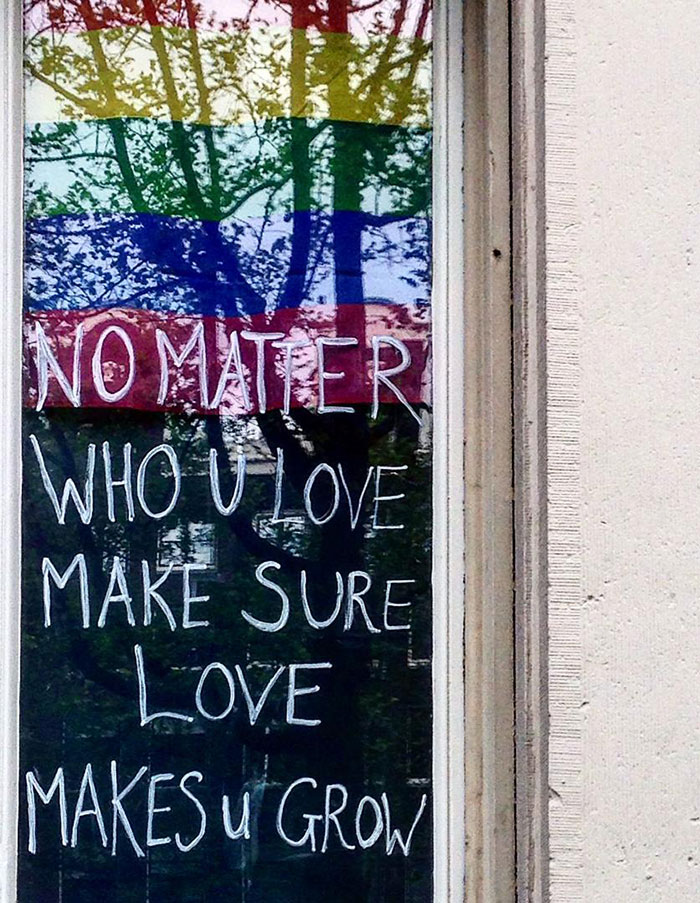 NO MATTER
WHO U LOVE
MAKE SURE
LOVE
MAKES U GROW